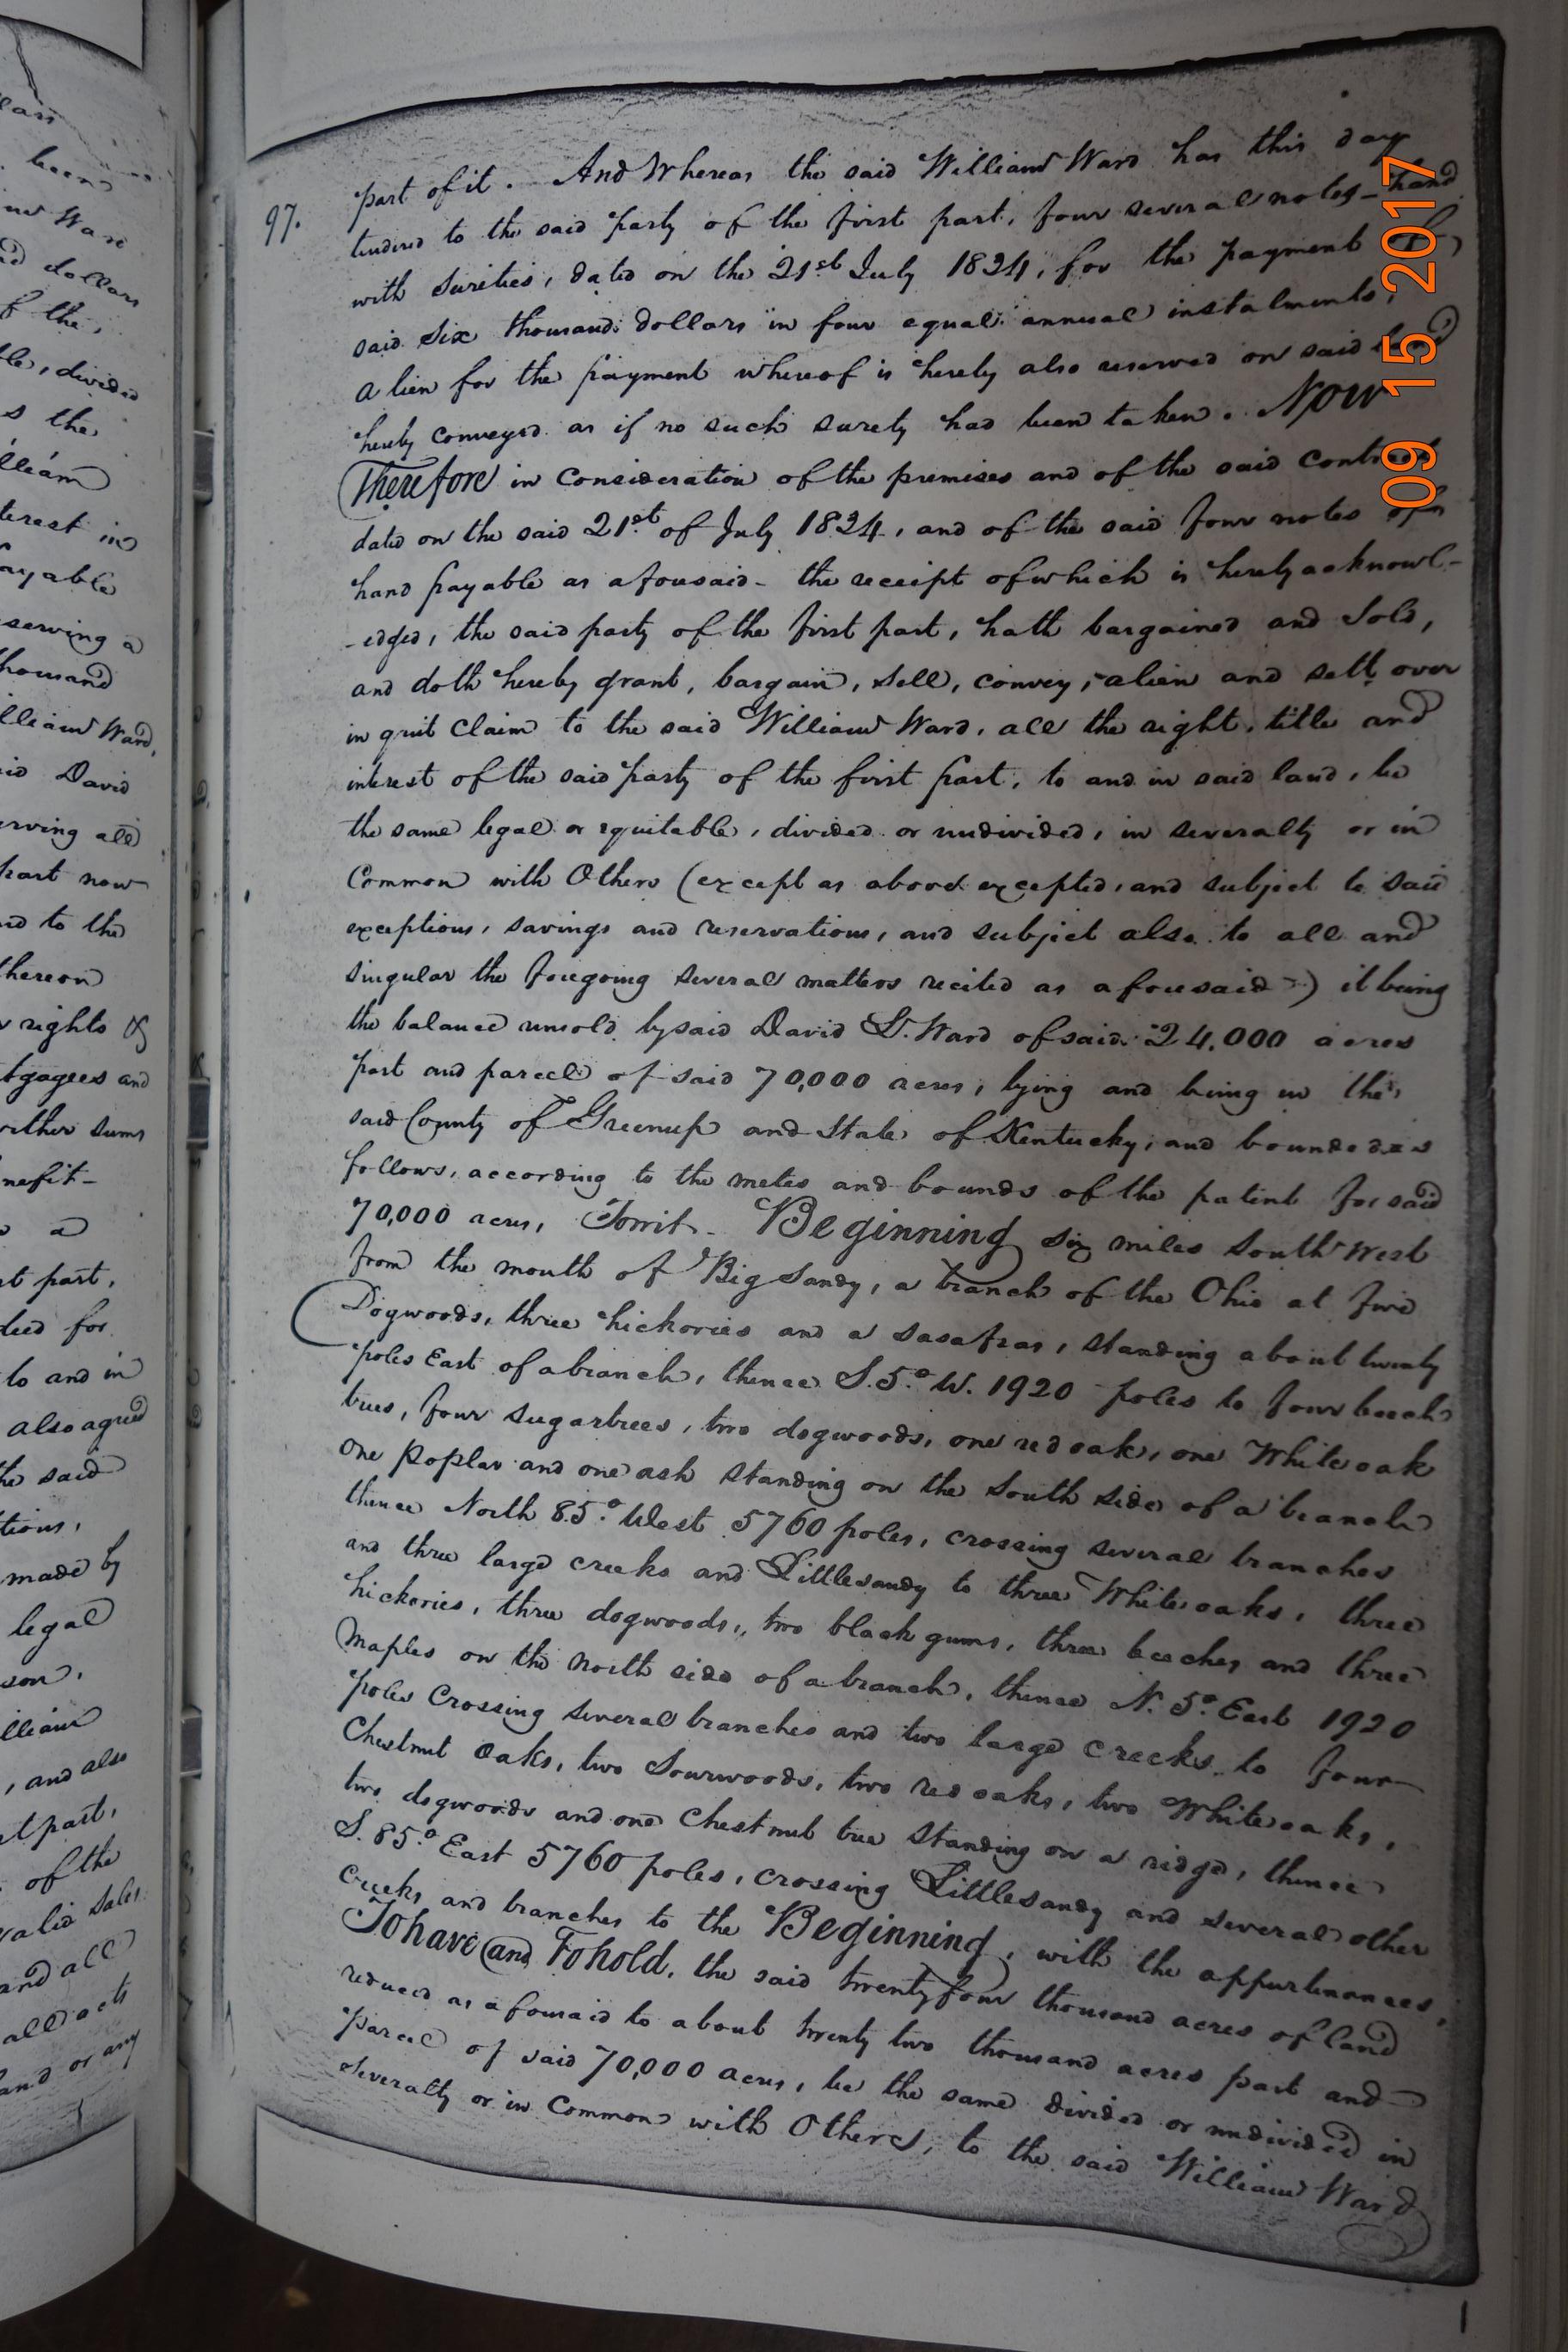 lars
been
Ward
dollars
of the
divided
s the
illiam
terest in
ayable
serving a
housand
lliam Ward,
David
erving all
part now
to the
hereon
rights &
tgagees and
other sums
nefit-
a
st part,
deed for
to and in
also agreed
the said
tions,
made by
legal
son,
illiam
, and also
st part,
of the
valid sales
and all
all acts
land or any
97.
part of it. And Whereas the said William Ward has this day
tendered to the said party of the first part, four several notes - hand
with sureties, dated on the 21st July 1824, for the payment of
said six thousand dollars in four equal annual instalments,
a lien for the payment whereof is hereby also reserved on said land
hereby conveyed as if no such surety had been taken. Now
Therefore in Consideration of the premises and of the said contract
dated on the said 21st of July 1824, and of the said four notes of
hand payable as afousaid - the receipt of which is hereby acknowl-
-edged, the said party of the first part, hath bargained and Sold,
and doth hereby grant, bargain, sell, convey, alien and sett over
in quit Claim to the said William Ward, all the right, title and
interest of the said party of the first part, to and in said land, be
the same legal or equitable, divided or undivided, in severalty or in
Common with Others (except as above excepted, and subject to said
exceptions, savings and reservations, and subject also to all and
singular the foregoing several matters recited as afousaid) it being
the balance unsold by said David L. Ward of said 24,000 acres
part and parcel of said 70,000 acres, lying and being in the
said County of Greenup and State of Kentucky, and bounded as
follows, according to the metes and bounds of the patent for said
70,000 acres, Towit. Beginning six miles South West
from the mouth of Big Sandy, a branch of the Ohio at five
Dogwoods, three hickories and a sasafras, standing about twenty
poles East of a branch, thence S. 5.° W. 1920 poles to four beech
trees, four sugartrees, two dogwoods, one red oak, one White oak
one poplar and one ash standing on the South side of a branch
thence North 85.° West 5760 poles, crossing several branches
and three large creeks and Littlesandy to three White oaks, three
hickories, three dogwoods, two black gums, three beeches and three
Maples on the north side of a branch, thence N. 5.° East 1920
poles Crossing several branches and two large creeks to four
Chestnut Oaks, two Sourwoods, two red oaks, two White oaks,
two dogwoods and one Chestnut tree standing on a ridge, thence
S. 85.° East 5760 poles, crossing Littlesandy and several other
creeks and branches to the Beginning, with the appurtenances,
To have and To hold, the said twenty four thousand acres of land
reduced as afousaid to about twenty two thousand acres part and
Parcel of said 70,000 acres, be the same divided or undivided in
severalty or in Common with Others, to the said William Ward
09 15 2017